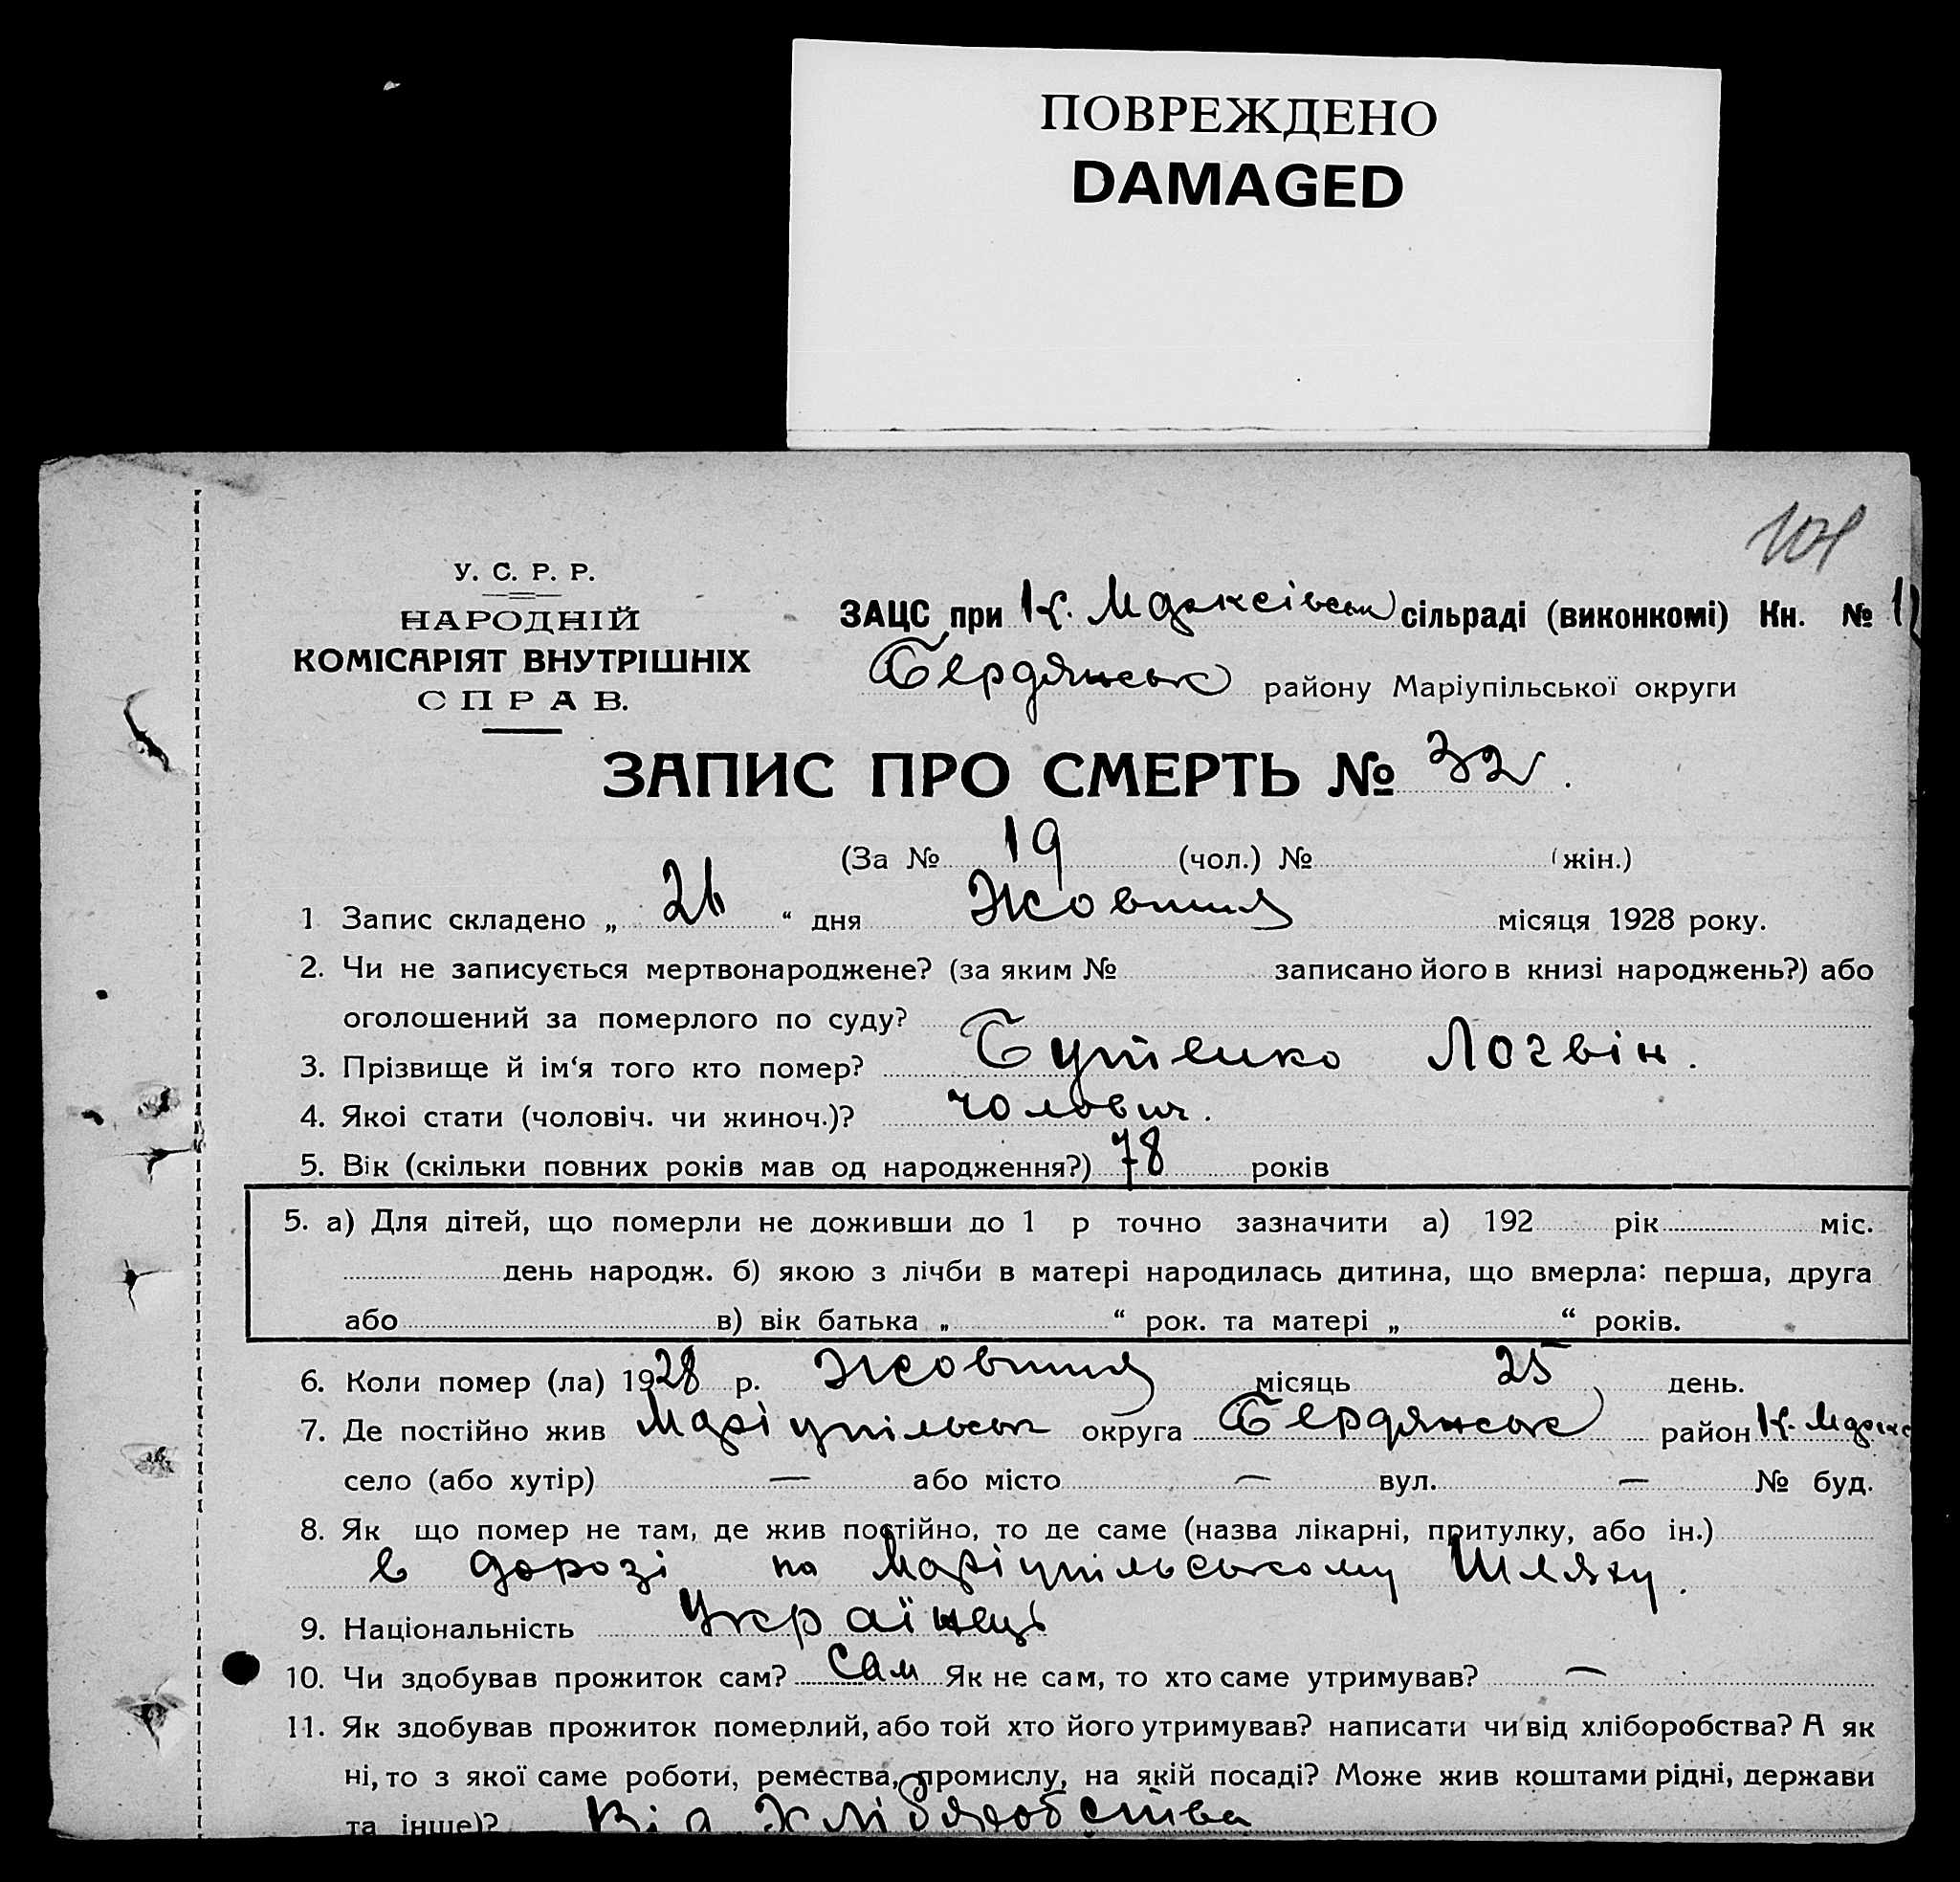 ПОВРЕЖДЕНО
DAMAGED
101
У. С. Р. Р.
НАРОДНІЙ
КОМІСАРІЯТ ВНУТРІШНІХ
СПРАВ.
ЗАЦС при К. Марксівськ сільраді (виконкомі) Кн. №
Бердянськ району Маріупільської округи
ЗАПИС ПРО СМЕРТЬ № 32.
(За № 19 (чол.) № (жін.)
1 Запис складено „ 26 “ дня Жовтня місяця 1928 року.
2. Чи не записується мертвонароджене? (за яким № записано його в книзі народжень?) або
оголошений за померлого по суду?
3. Прізвище й ім‘я того кто помер? Бутенко Логвін.
4. Якоі стати (чоловіч. чи жиноч.)? чолович.
5. Вік (скільки повних років мав од народження?) 78 років
5. а) Для дітей, що померли не доживши до 1 р точно зазначити а) 192 рік міс.
день народж. б) якою з лічби в матері народилась дитина, що вмерла: перша, друга
або в) вік батька „ “ рок. та матері „ “ років.
6. Коли помер (ла) 1928 р. Жовтня місяць 25 день.
7. Де постійно жив Маріупільськ округа Бердянськ район К. Маркс
село (або хутір) — або місто — вул. — № буд.
8. Як що помер не там, де жив постійно, то де саме (назва лікарні, притулку, або ін.)
в дорозі по Маріупільському Шляху.
9. Національність Українець
10. Чи здобував прожиток сам? Сам Як не сам, то хто саме утримував? —
11. Як здобував прожиток померлий, або той хто його утримував? написати чи від хліборобства? А як
ні, то з якої саме роботи, ремества, промислу, на якій посаді? Може жив коштами рідні, держави
та інше)? Від Хліборобства